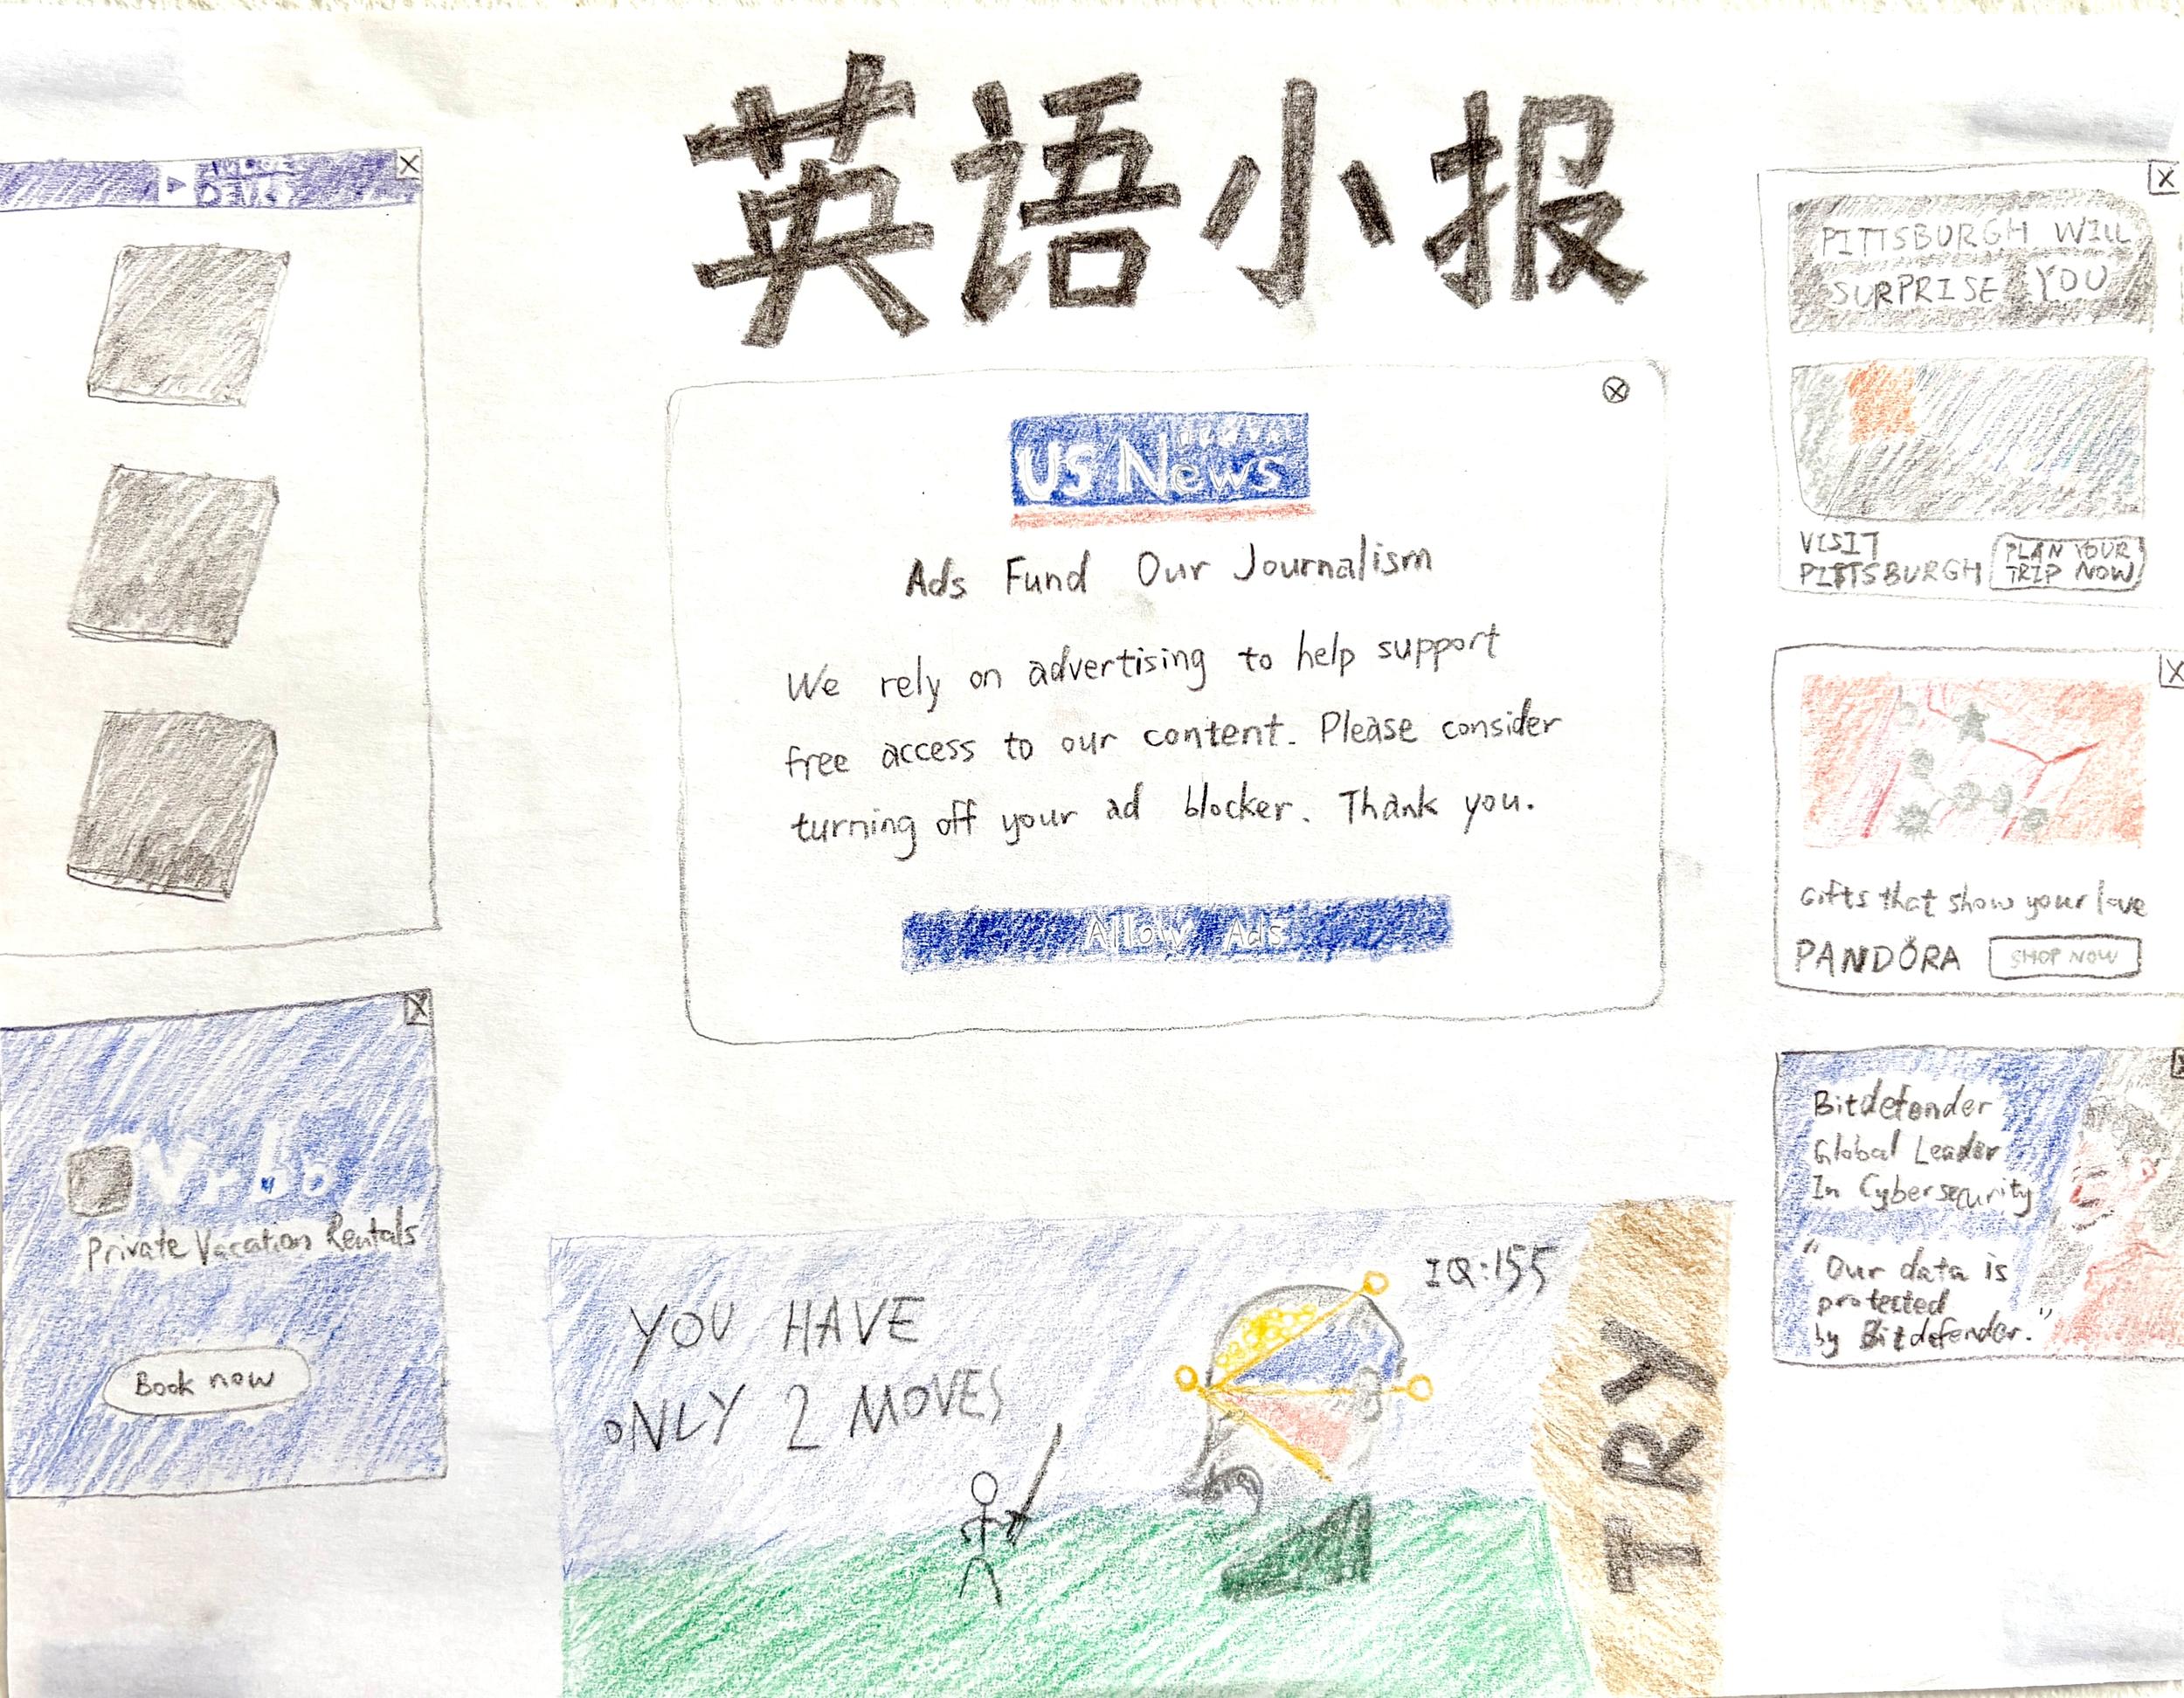 英语小报
US News
Ads Fund Our Journalism
We rely on advertising to help support
free access to our content. Please consider
turning off your ad blocker. Thank you.
Allow Ads
Vrbo
Private Vacation Rentals
Book now
PITTSBURGH WILL
SURPRISE YOU
VISIT
PITTSBURGH
PLAN YOUR
TRIP NOW
Gifts that show your love
PANDORA
SHOP NOW
Bitdefender
Global Leader
In Cybersecurity
"Our data is
protected
by Bitdefender."
YOU HAVE
ONLY 2 MOVES
IQ:155
TRY